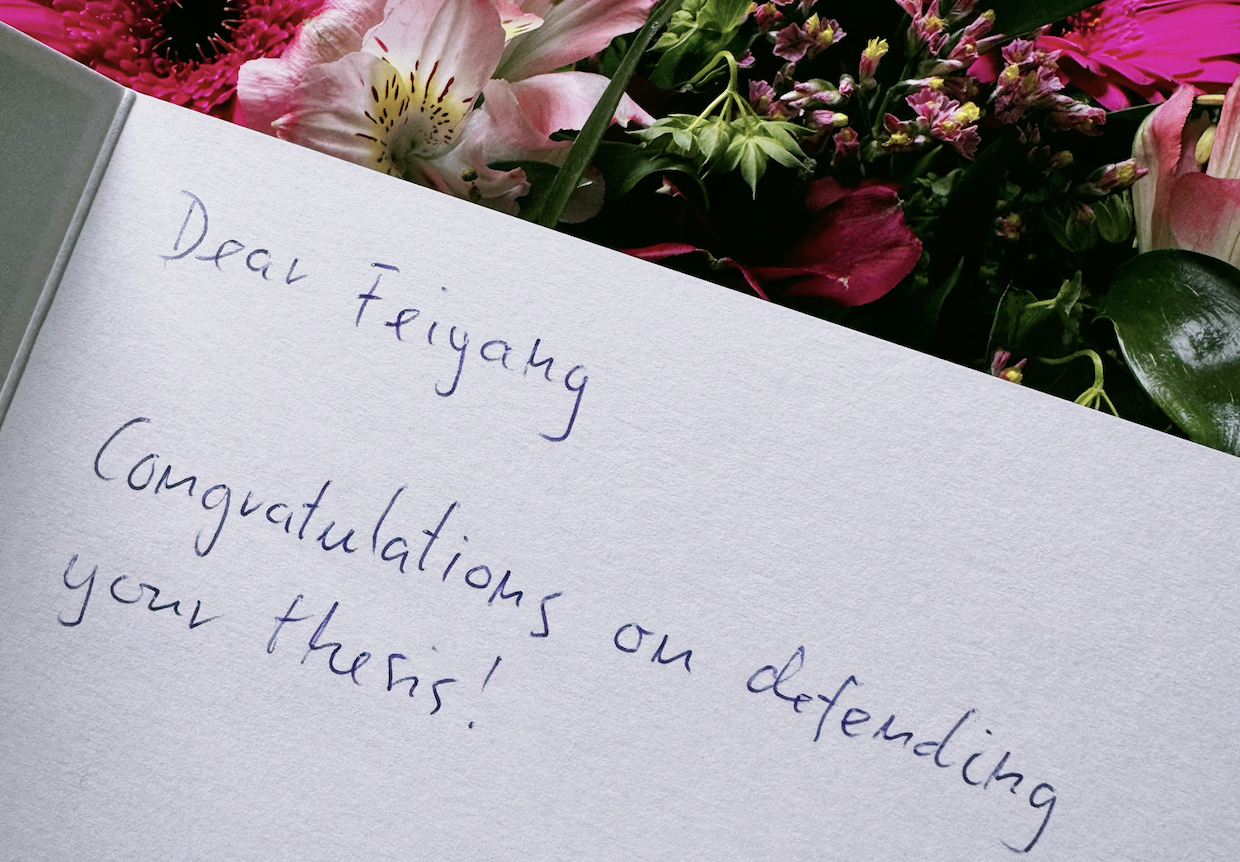 Dear Feiyang
Congratulations on defending
your thesis!